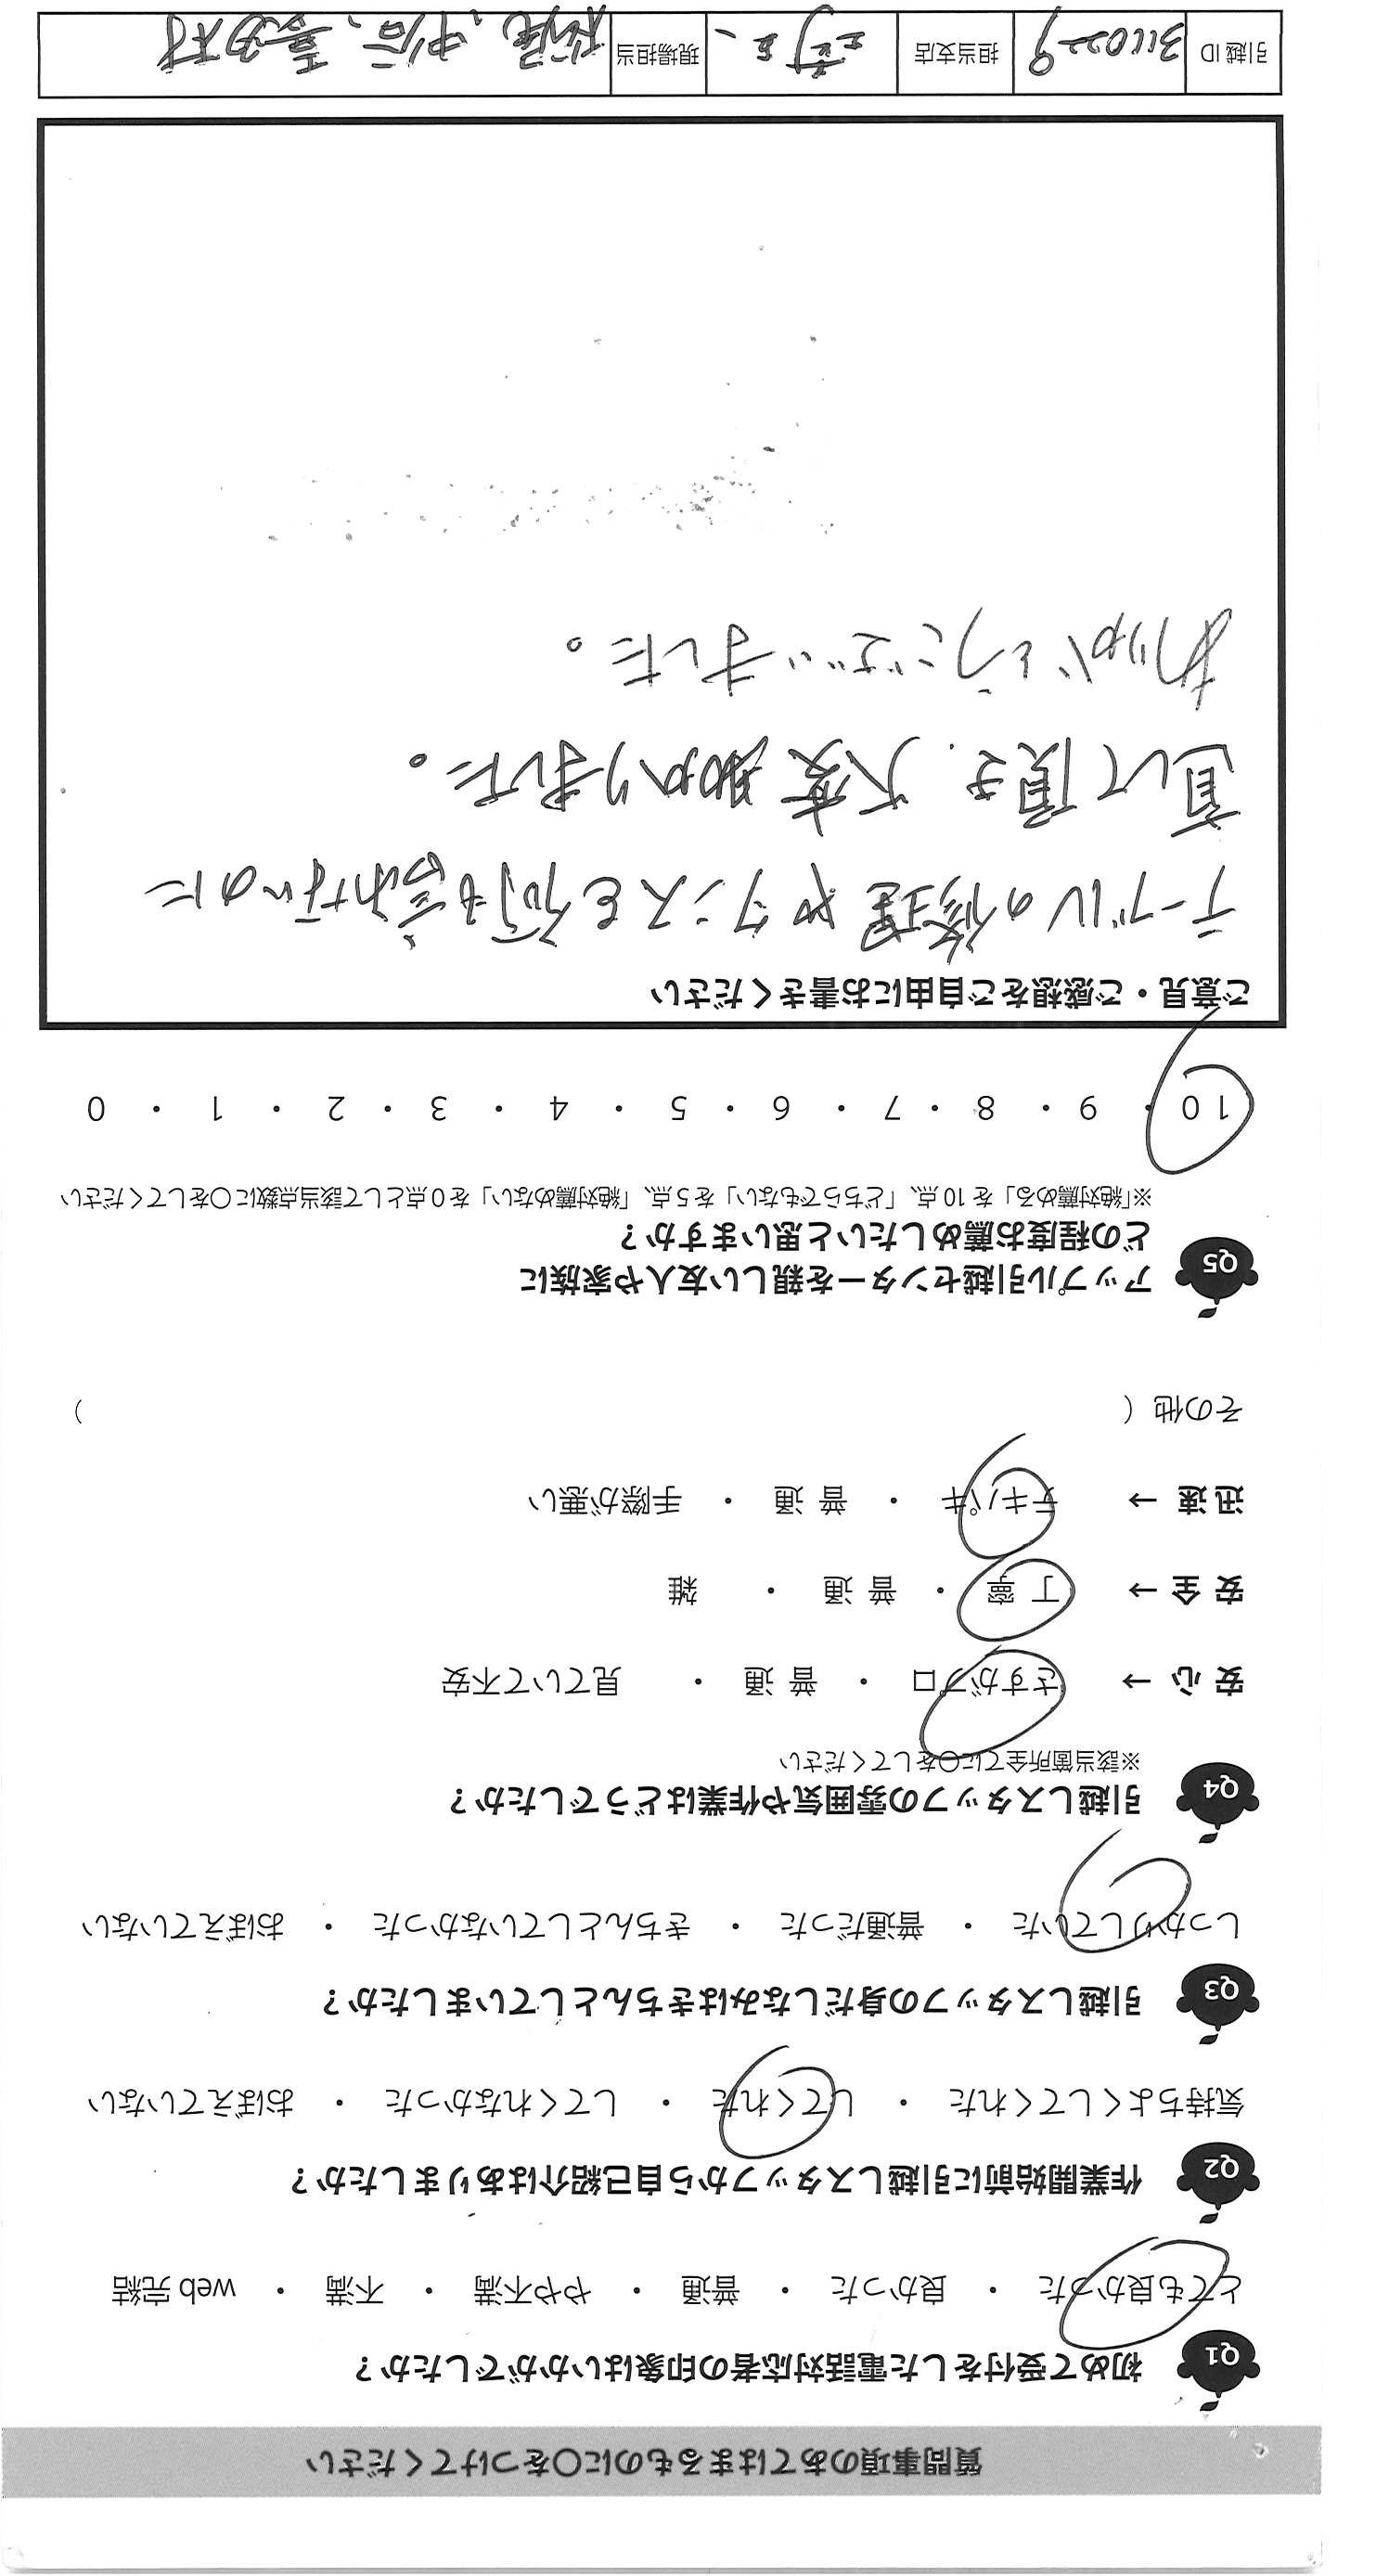 質問事項のあてはまるものに〇をつけてください
Q1 初めて受付をした電話対応者の印象はいかがでしたか？
とても良かった ・ 良かった ・ 普通 ・ やや不満 ・ 不満 ・ web 完結
Q2 作業開始前に引越しスタッフから自己紹介はありましたか？
気持ちよくしてくれた ・ してくれた ・ してくれなかった ・ おぼえていない
Q3 引越しスタッフの身だしなみはきちんとしていましたか？
しっかりしていた ・ 普通だった ・ きちんとしていなかった ・ おぼえていない
Q4 引越しスタッフの雰囲気や作業はどうでしたか？
※該当箇所全てに〇をしてください
安 心 → さすがプロ ・ 普 通 ・ 見ていて不安
安 全 → 丁 寧 ・ 普 通 ・ 雑
迅 速 → テキパキ ・ 普 通 ・ 手際が悪い
その他（ ）
Q5 アップル引越センターを親しい友人や家族に
どの程度お薦めしたいと思いますか？
※「絶対薦める」を 10 点、「どちらでもない」を 5 点、「絶対薦めない」を 0 点として該当点数に〇をしてください
10 ・ 9 ・ 8 ・ 7 ・ 6 ・ 5 ・ 4 ・ 3 ・ 2 ・ 1 ・ 0
ご意見・ご感想をご自由にお書きください
テーブルの修理やタンスを何も言わないのに
直して頂き、大変助かりました。
ありがとうございました。
引越 ID 3110229 担当支店 現場担当 中谷、喜多村